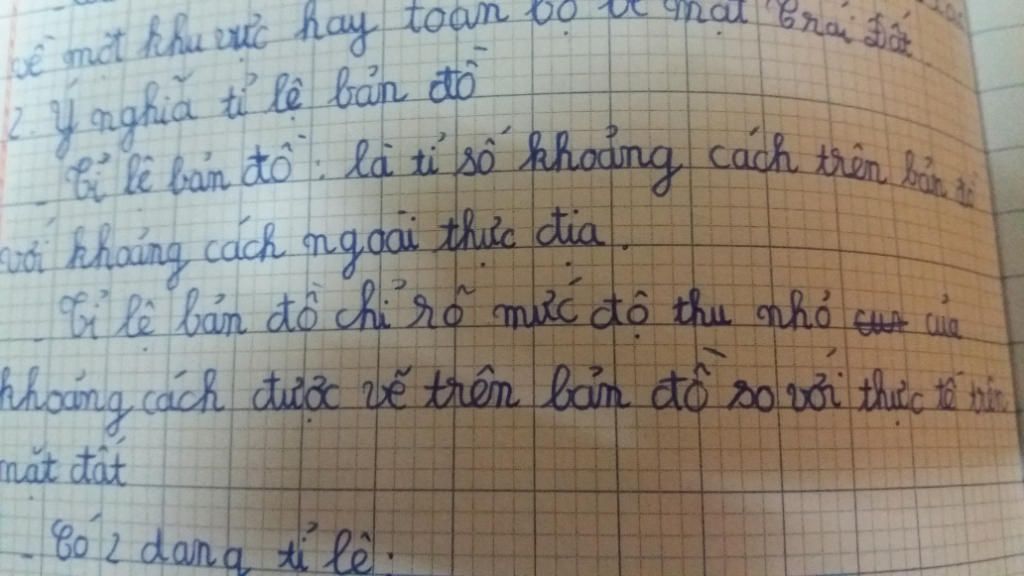 về một khu vực hay toàn bộ bề mặt Trái Đất
2. Ý nghĩa tỉ lệ bản đồ
_ Tỉ lệ bản đồ: là tỉ số khoảng cách trên bản đồ
với khoảng cách ngoài thực địa.
_ Tỉ lệ bản đồ chỉ rõ mức độ thu nhỏ của
khoảng cách được vẽ trên bản đồ so với thực tế trên
mặt đất
_ Có 2 dạng tỉ lệ: